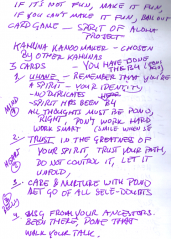 IF IT'S NOT FUN, MAKE IT FUN,
IF YOU CAN'T MAKE IT FUN, BAIL OUT
CARD GAME - SPIRIT OF ALOHA
PROJECT
KAHUNA KANOO MAKER - CHOSEN
BY OTHER KAHUNAS
3 CARDS - YOU HAVE DONE
THIS B4
1 UHANE - REMEMBER THAT YOU'RE
A SPIRIT - YOUR IDENTITY
- NO DUPLICATES
- SPIRIT HAS BEEN B4
MIND
ALL THOUGHTS MUST BE PONO,
RIGHT. DON'T WORK HARD
WORK SMART (SMILE WHEN
2- TRUST IN THE GREATNESS OF
YOUR SPIRIT TRUST YOUR PATH,
DO NOT CONTROL IT, LET IT
UNFOLD.
3- CARE & NURTURE WITH PONO
LET GO OF ALL SELF-DOUBTS.
BODY
MSG FROM YOUR ANCESTORS.
BEEN THERE, DONE THAT
WALK YOUR TALK.